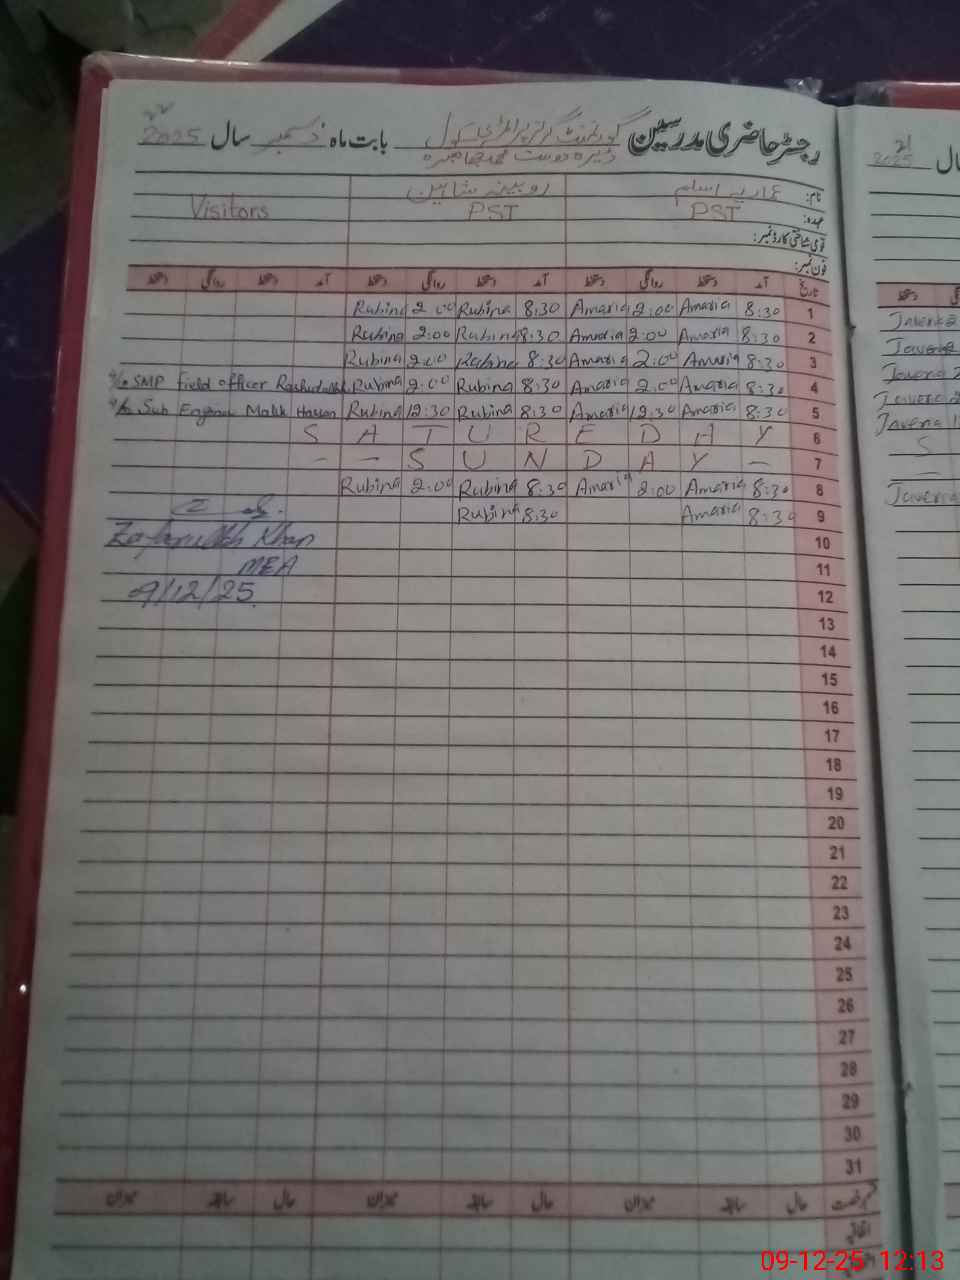 22
رجسٹر حاضری مدرسین گورنمنٹ گرلز پرائمری سکول بابت ماہ دسمبر سال 2025
ڈیرہ دوست محمد
نام: عماریہ اسلم روبینہ شاہین
عہدہ: PST PST Visitors
قومی شناختی کارڈ نمبر:
فون نمبر:
تاریخ آمد دستخط روانگی دستخط آمد دستخط روانگی دستخط آمد دستخط روانگی دستخط
Rubina 2:00 Rubina 8:30 Amaria 2:00 Amaria 8:30 1
Rubina 2:00 Rubina 8:30 Amaria 2:00 Amaria 8:30 2
Rubina 2:00 Rubina 8:30 Amaria 2:00 Amaria 8:30 3
SMP Field officer Rubina 2:00 Rubina 8:30 Amaria 2:00 Amaria 8:30 4
Sub Malik Hassan Rubina 12:30 Rubina 8:30 Amaria 12:30 Amaria 8:30 5
S A T U R E D A Y 6
- - S U N D A Y - 7
Rubina 2:00 Rubina 8:30 Amaria 2:00 Amaria 8:30 8
Rubina 8:30 Amaria 8:30 9
Zafarullah Khan 10
MEA 11
9/12/25 12
13
14
15
16
17
18
19
20
21
22
23
24
25
26
27
28
29
30
31
حال سابقہ میزان حال سابقہ میزان حال سابقہ میزان
اتفاقیہ
21
2025
Javeria
Javeria
Javeria
Javeria
Javeria
S
Javeria
09-12-25 12:13